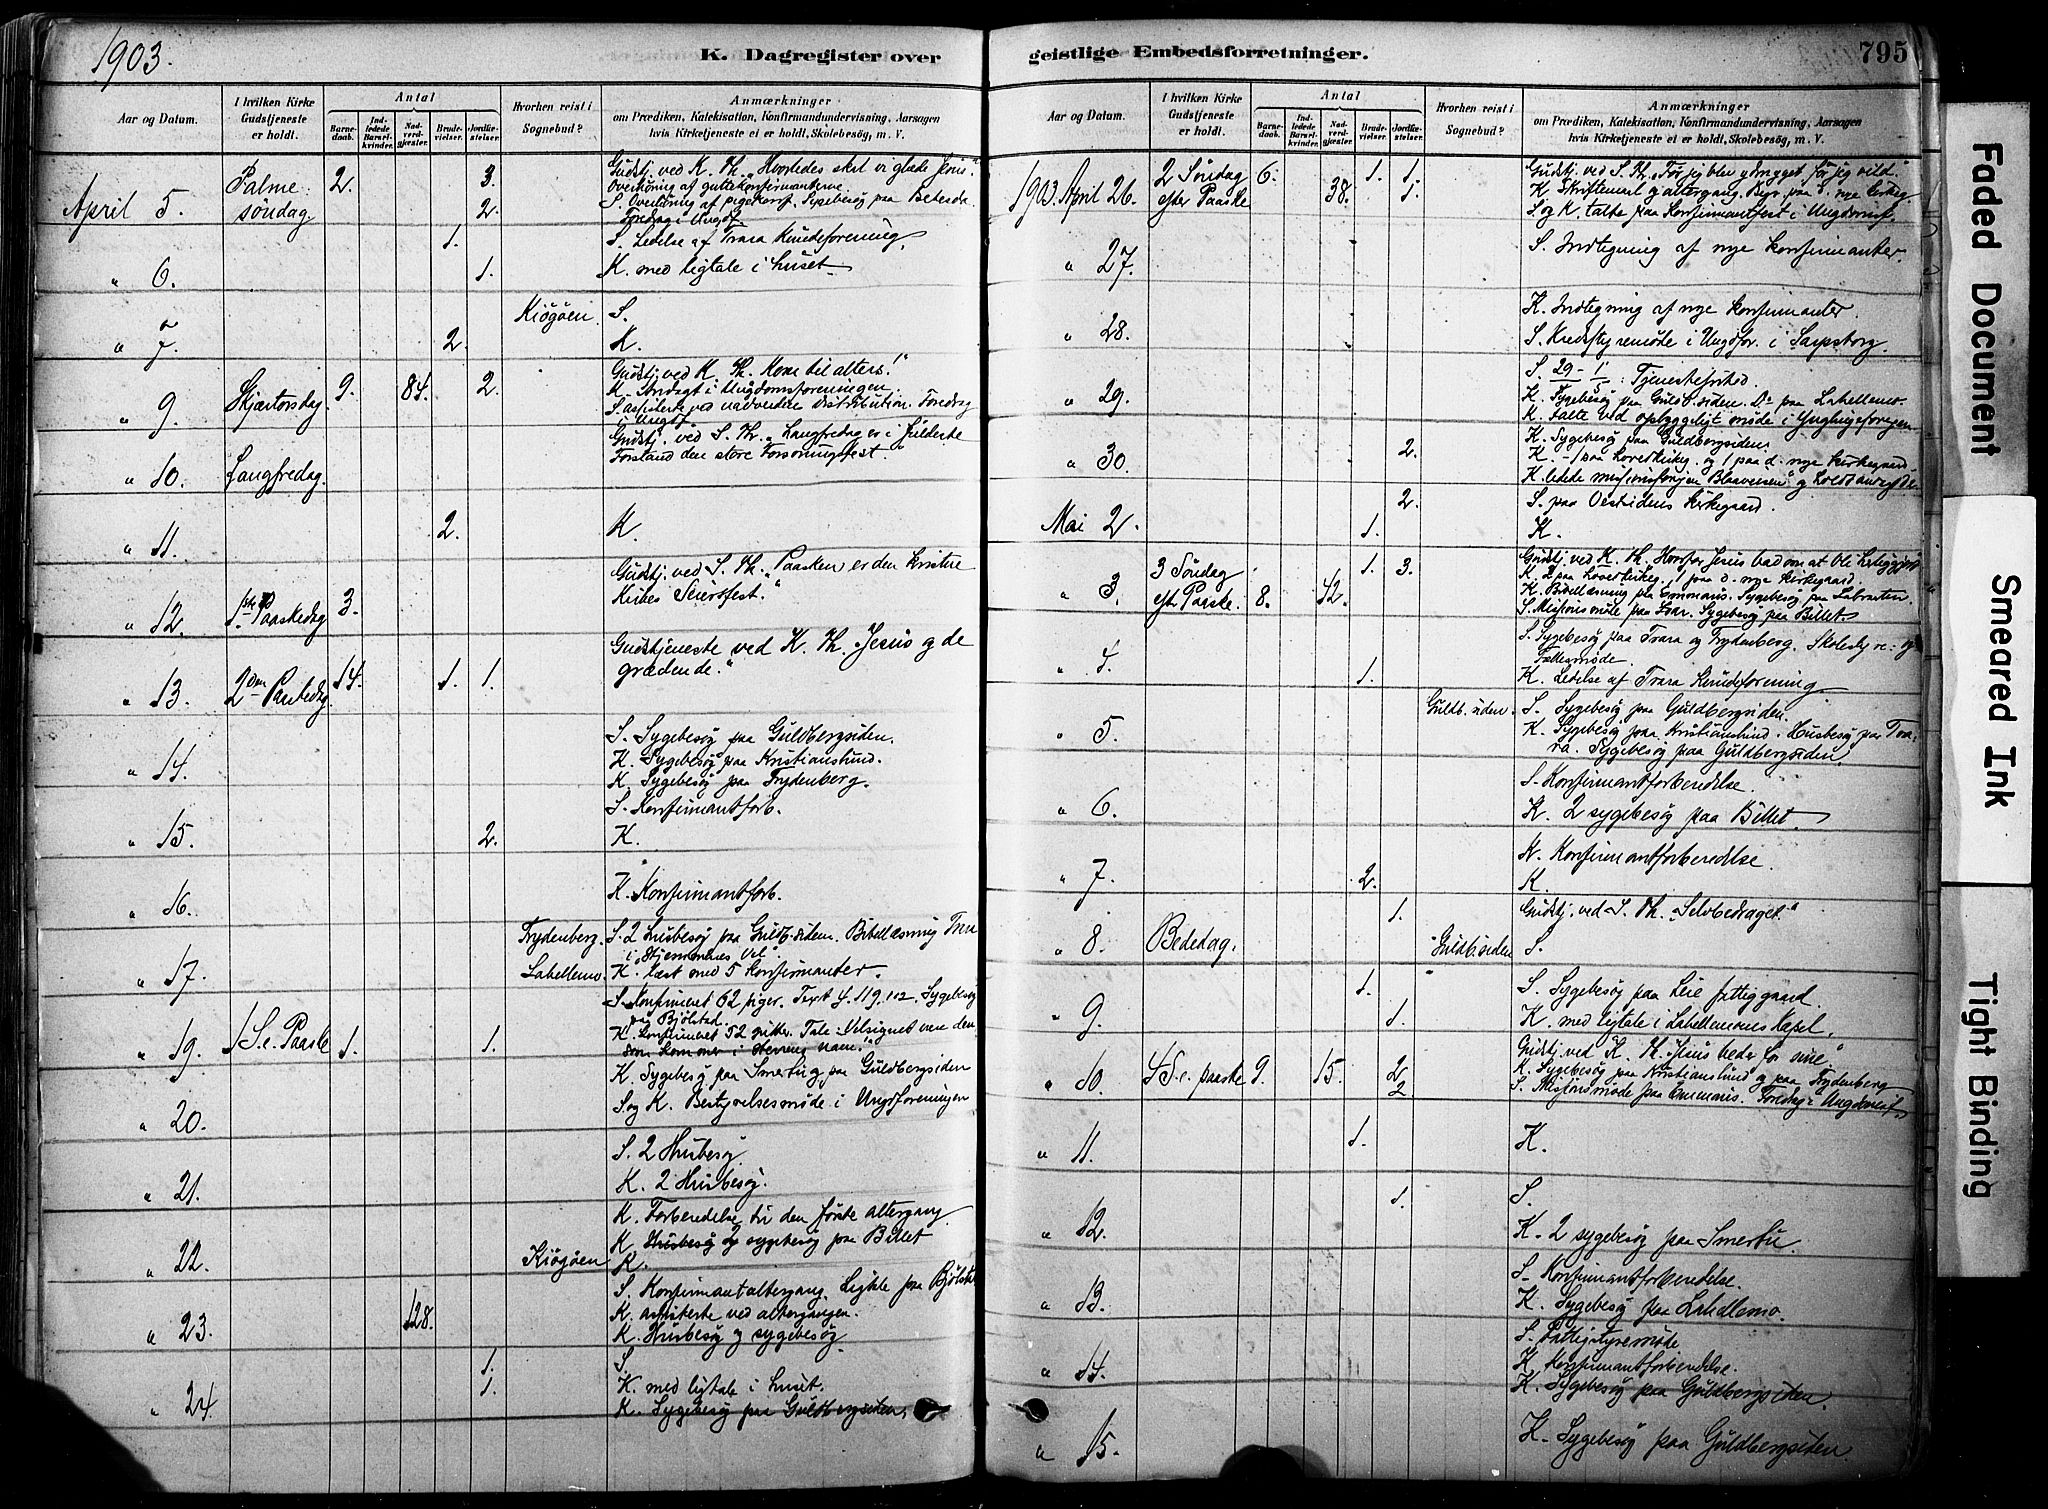 1903.
K. Dagregister over
Aar og Datum.
I hvilken Kirke Gudstjeneste er holdt.
Antal
Barnedaab.
Indledede Barselkvinder.
Nadverdgjæster.
Brudevielser.
Jordfæstelser.
Hvorhen reist i Sognebud?
Anmærkninger
om Prædiken, Katekisation, Konfirmandundervisning, Aarsagen
hvis Kirketjeneste ei er holdt, Skolebesög, m. V.
April 5. Palmesöndag. 2. 3. Gudstj. ved K. Th. "Hvorledes skal vi glæde Jesus"
Overhöring af guttekonfirmanterne.
2. S. Overhöring af pigekonf. Sygebesög paa Betesda
Foredrag i Ungdf.
1. S. Ledelse af Trara Kvindeforening.
" 6. 1. K. med ligtale i huset.
Kiögöen. S.
" 7. 2. K.
" 9. Skjærtorsdag 9. 84. 2. Gudstj. ved K. Th. Kom til alters!"
K. Andagt i Ungdomsforeningen.
S. assisterte ved nadverdens distribution. Foredrag
i Ungdf.
" 10. Langfredag. Gudstj. ved S. Th. "Langfredag er i fuldeste
Forstand den store Forsoningsfest."
" 11. 2. K.
" 12. 1ste Paaskedag 3. Gudstj. ved S. Th. "Paasken er den kristne
Kirkes Seiersfest."
" 13. 2den Paaskedag 14. 1. 1. Gudstjeneste ved K. Th. Jesus og de
grædende."
" 14. S. Sygebesög paa Guldbergsiden.
K. Sygebesög paa Kristianslund.
K. Sygebesög paa Frydenberg.
S. Konfirmantforb.
" 15. 2. K.
" 16. K. Konfirmantforb.
" 17. Frydenberg. S. 2 Husbesög paa Guldb.siden. Bibellæsning
i Hjemmenes Vel.
Labellemo. K. læst med 5 konfirmanter.
" 19. 1 S. e. Paaske 1. 1. S. Konfirmeret 62 piger. Text 4. 119. 112. Sygebesög
paa Bjölstad.
K. Konfirmeret 52 gutter. Tale: Velsignet være den
som kommer i Herrens navn."
K. Sygebesög paa Smertu og paa Guldbergsiden
" 20. S. og K. Bestyrelsesmöde i Ungdforeningen
S. 2 Husbesög
" 21. K. 2 Husbesög.
K. Forberedelse til den förste altergang
" 22. K. Husbesög og sygebesög paa Billet
Kiögöen K.
S. Konfirmantaltergang. Ligtale paa Bjölstad
" 23. 128. K. assisterte ved altergangen.
K. Husbesög og sygebesög.
1. S.
" 24. 1. K. med ligtale i huset.
K. Sygebesög paa Guldbergsiden.
geistlige Embedsforretninger.
795
Aar og Datum.
I hvilken Kirke Gudstjeneste er holdt.
Antal
Barnedaab.
Indledede Barselkvinder.
Nadverdgjæster.
Brudevielser.
Jordfæstelser.
Hvorhen reist i Sognebud?
Anmærkninger
om Prædiken, Katekisation, Konfirmandundervisning, Aarsagen
hvis Kirketjeneste ei er holdt, Skolebesög, m. V.
1903. April 26. 2 Söndag efter Paaske 6. 38. 1. 1. Gudstj. ved S. Th. "Før jeg blev ydmyget för jeg vild."
1. K. Skriftemaal og altergang. Begr. paa d. nye kirkeg.
S. og K. talte paa Konfirmantfest i Ungdomsf.
" 27. S. Indtegning af nye konfirmanter.
K. Indtegning af nye konfirmanter.
" 28. S. Kredsstyremöde i Ungdfor. i Sarpsborg.
S. 29 - 1/5: Tjenestefrihed.
" 29. K. Sygebesög paa Guldb.siden. Do paa Labellemo.
K. talte ved opbyggeligt möde i Ynglingeforeningen
K. Sygebesög paa Guldbergsiden
" 30. 2. K. - 1 paa Leverkirkeg. og 1 paa d. nye kirkegaard.
K. ledede missionsforeningen Blaaveisen
Mai 2. 2. S. paa Oestsidens kirkegaard.
1. K.
" 3. 3 Söndag eft. Paaske. 8. 42. 1. 3. Gudstj. ved K. Th. Hvorfor Jesus bad om at bli herliggjort
K. 2 paa Leverkirkeg. 1 paa d. nye kirkegaard.
K. Bibellæsning paa Emmaus. Sygebesög paa Labraaten.
S. Missionsmöde paa Trar. Sygebesög paa Billet.
" 4. S. Sygebesög paa Trara og Frydenberg. Skolestyre- og
Fællesmöde.
1. K. Ledelse af Trara Kvindeforening
" 5. Guldb.siden. S. Sygebesög paa Guldbergsiden.
K. Sygebesög paa Kristianslund. Husbesög paa Trara.
Sygebesög paa Guldbergsiden.
S. Konfirmantforberedelse.
" 6. K. 2 sygebesög paa Billet.
K. Konfirmantforberedelse.
" 7. 2. K.
1. Gudstj. ved S. Th. "Selvbedraget."
" 8. Bededag. Guldb.siden S.
1. S. Sygebesög paa Leie fattiggaard.
" 9. 1. K. med ligtale i Labellemoens kapel.
" 10. 4 S. e. paaske 9. 15. 2 Gudstj. ved K. Th. "Jesus beder for sine."
K. Sygebesög paa Kristianslund og paa Frydenberg
2 S. Missionsmöde paa Emmaus. Foredrag i Ungdomsf
" 11. 1. K.
1. S.
" 12. K. 2 sygebesög paa Smertu.
S. Konfirmantforberedelse.
" 13. K. Sygebesög paa Labellemo.
S. Fattigstyremöde
" 14. K. Konfirmantforberedelse.
K. Sygebesög paa Guldbergsiden.
" 15. K. Sygebesög paa Guldbergsiden
Faded Document
Smeared Ink
Tight Binding